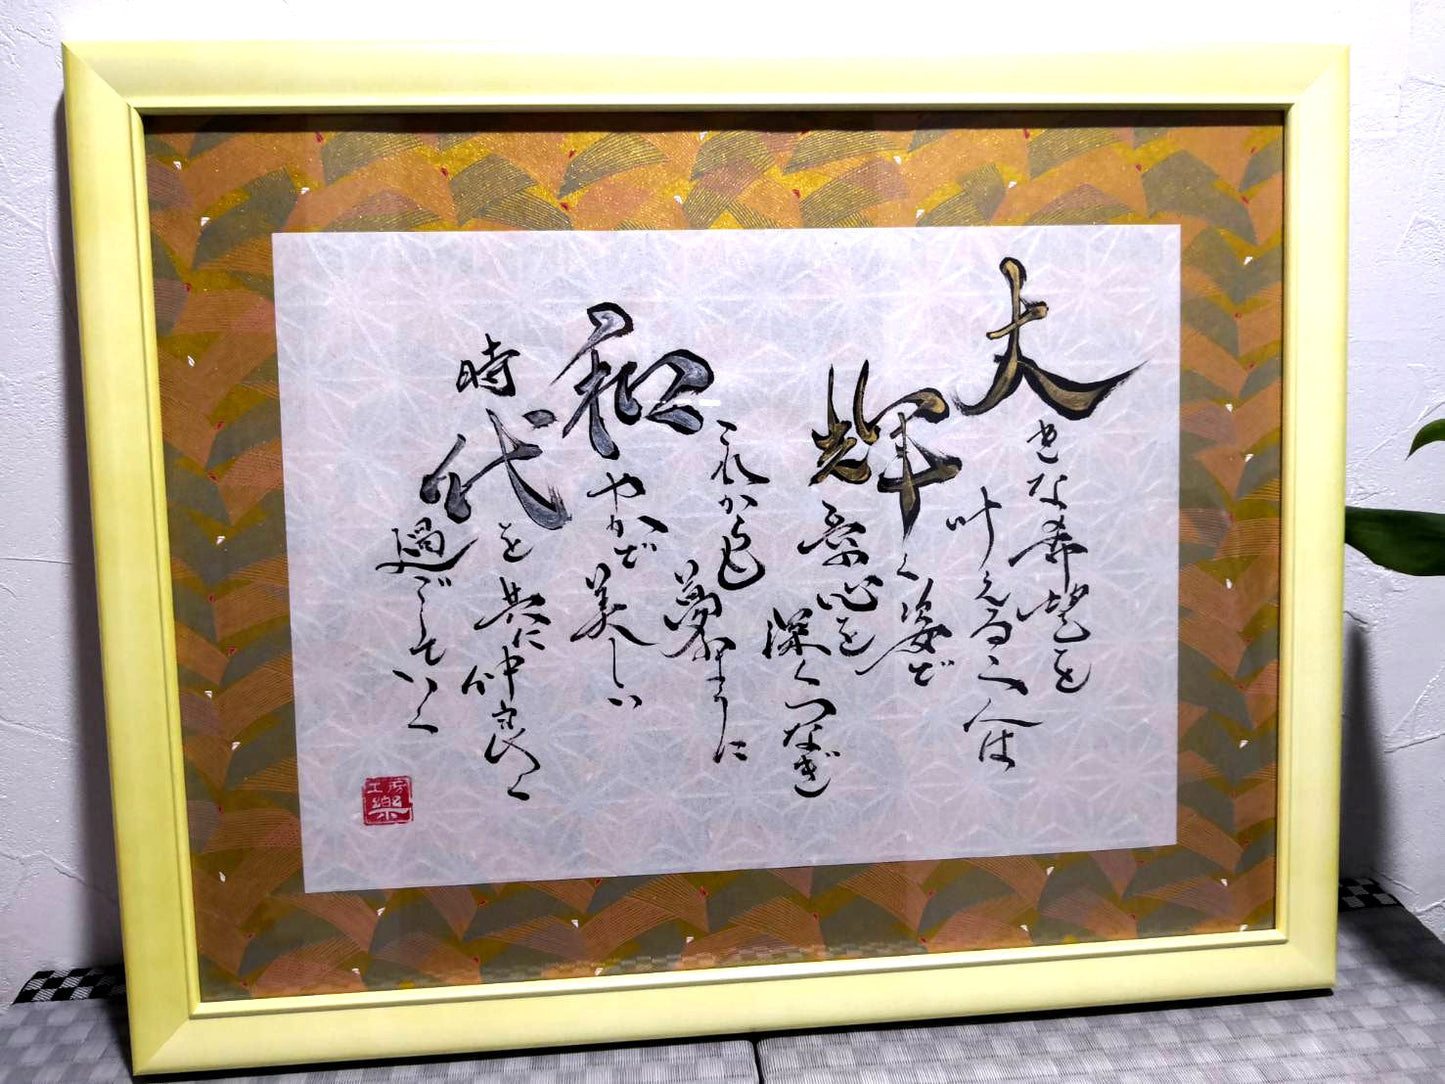 大きな希望を
叶える二人は
輝く姿で
心を
深くつなぎ
これからも
夢のように
和やかで
美しい
時代を
共に仲良く
過ごしていく
工房
樂